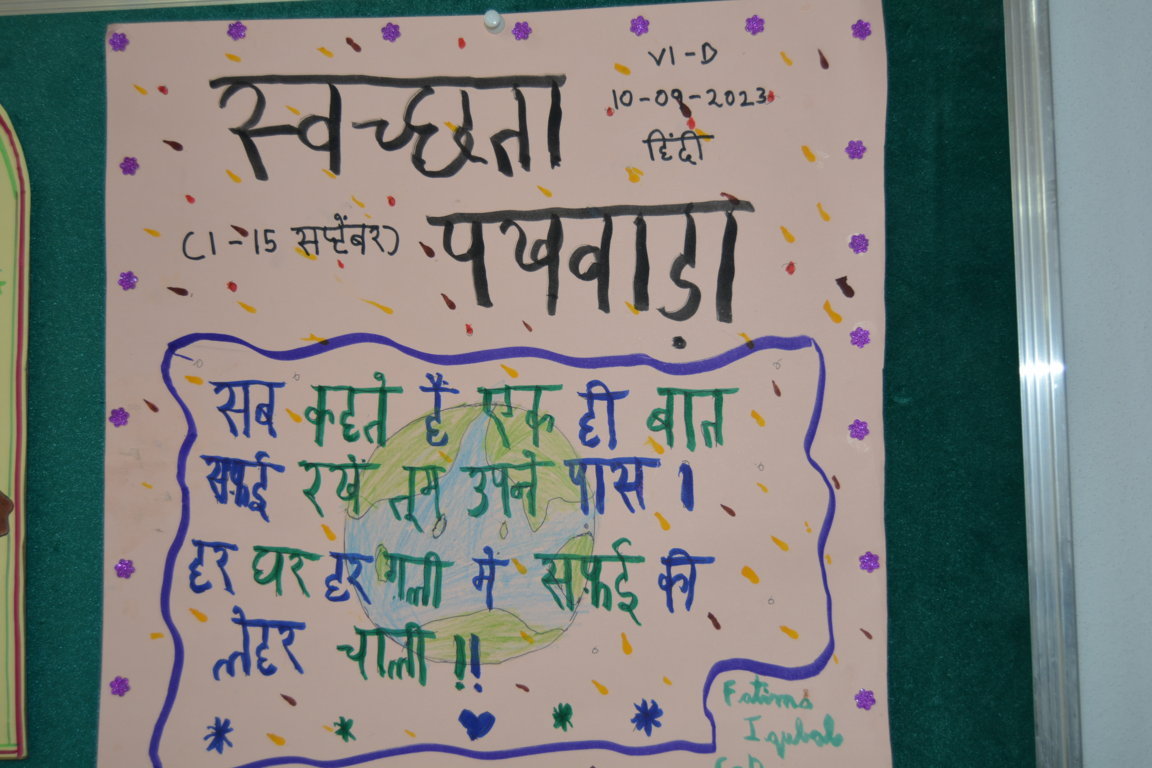 VI-D
10-09-2023
हिंदी
स्वच्छता
(1-15 सप्टेंबर) पखवाड़ा
सब कहते हैं एक ही बात
सफ़ई रखें तूम उपने पास ।
हर घर हर गली में सफ़ई की
लेहर चाली !!
Fatima
Iqubal